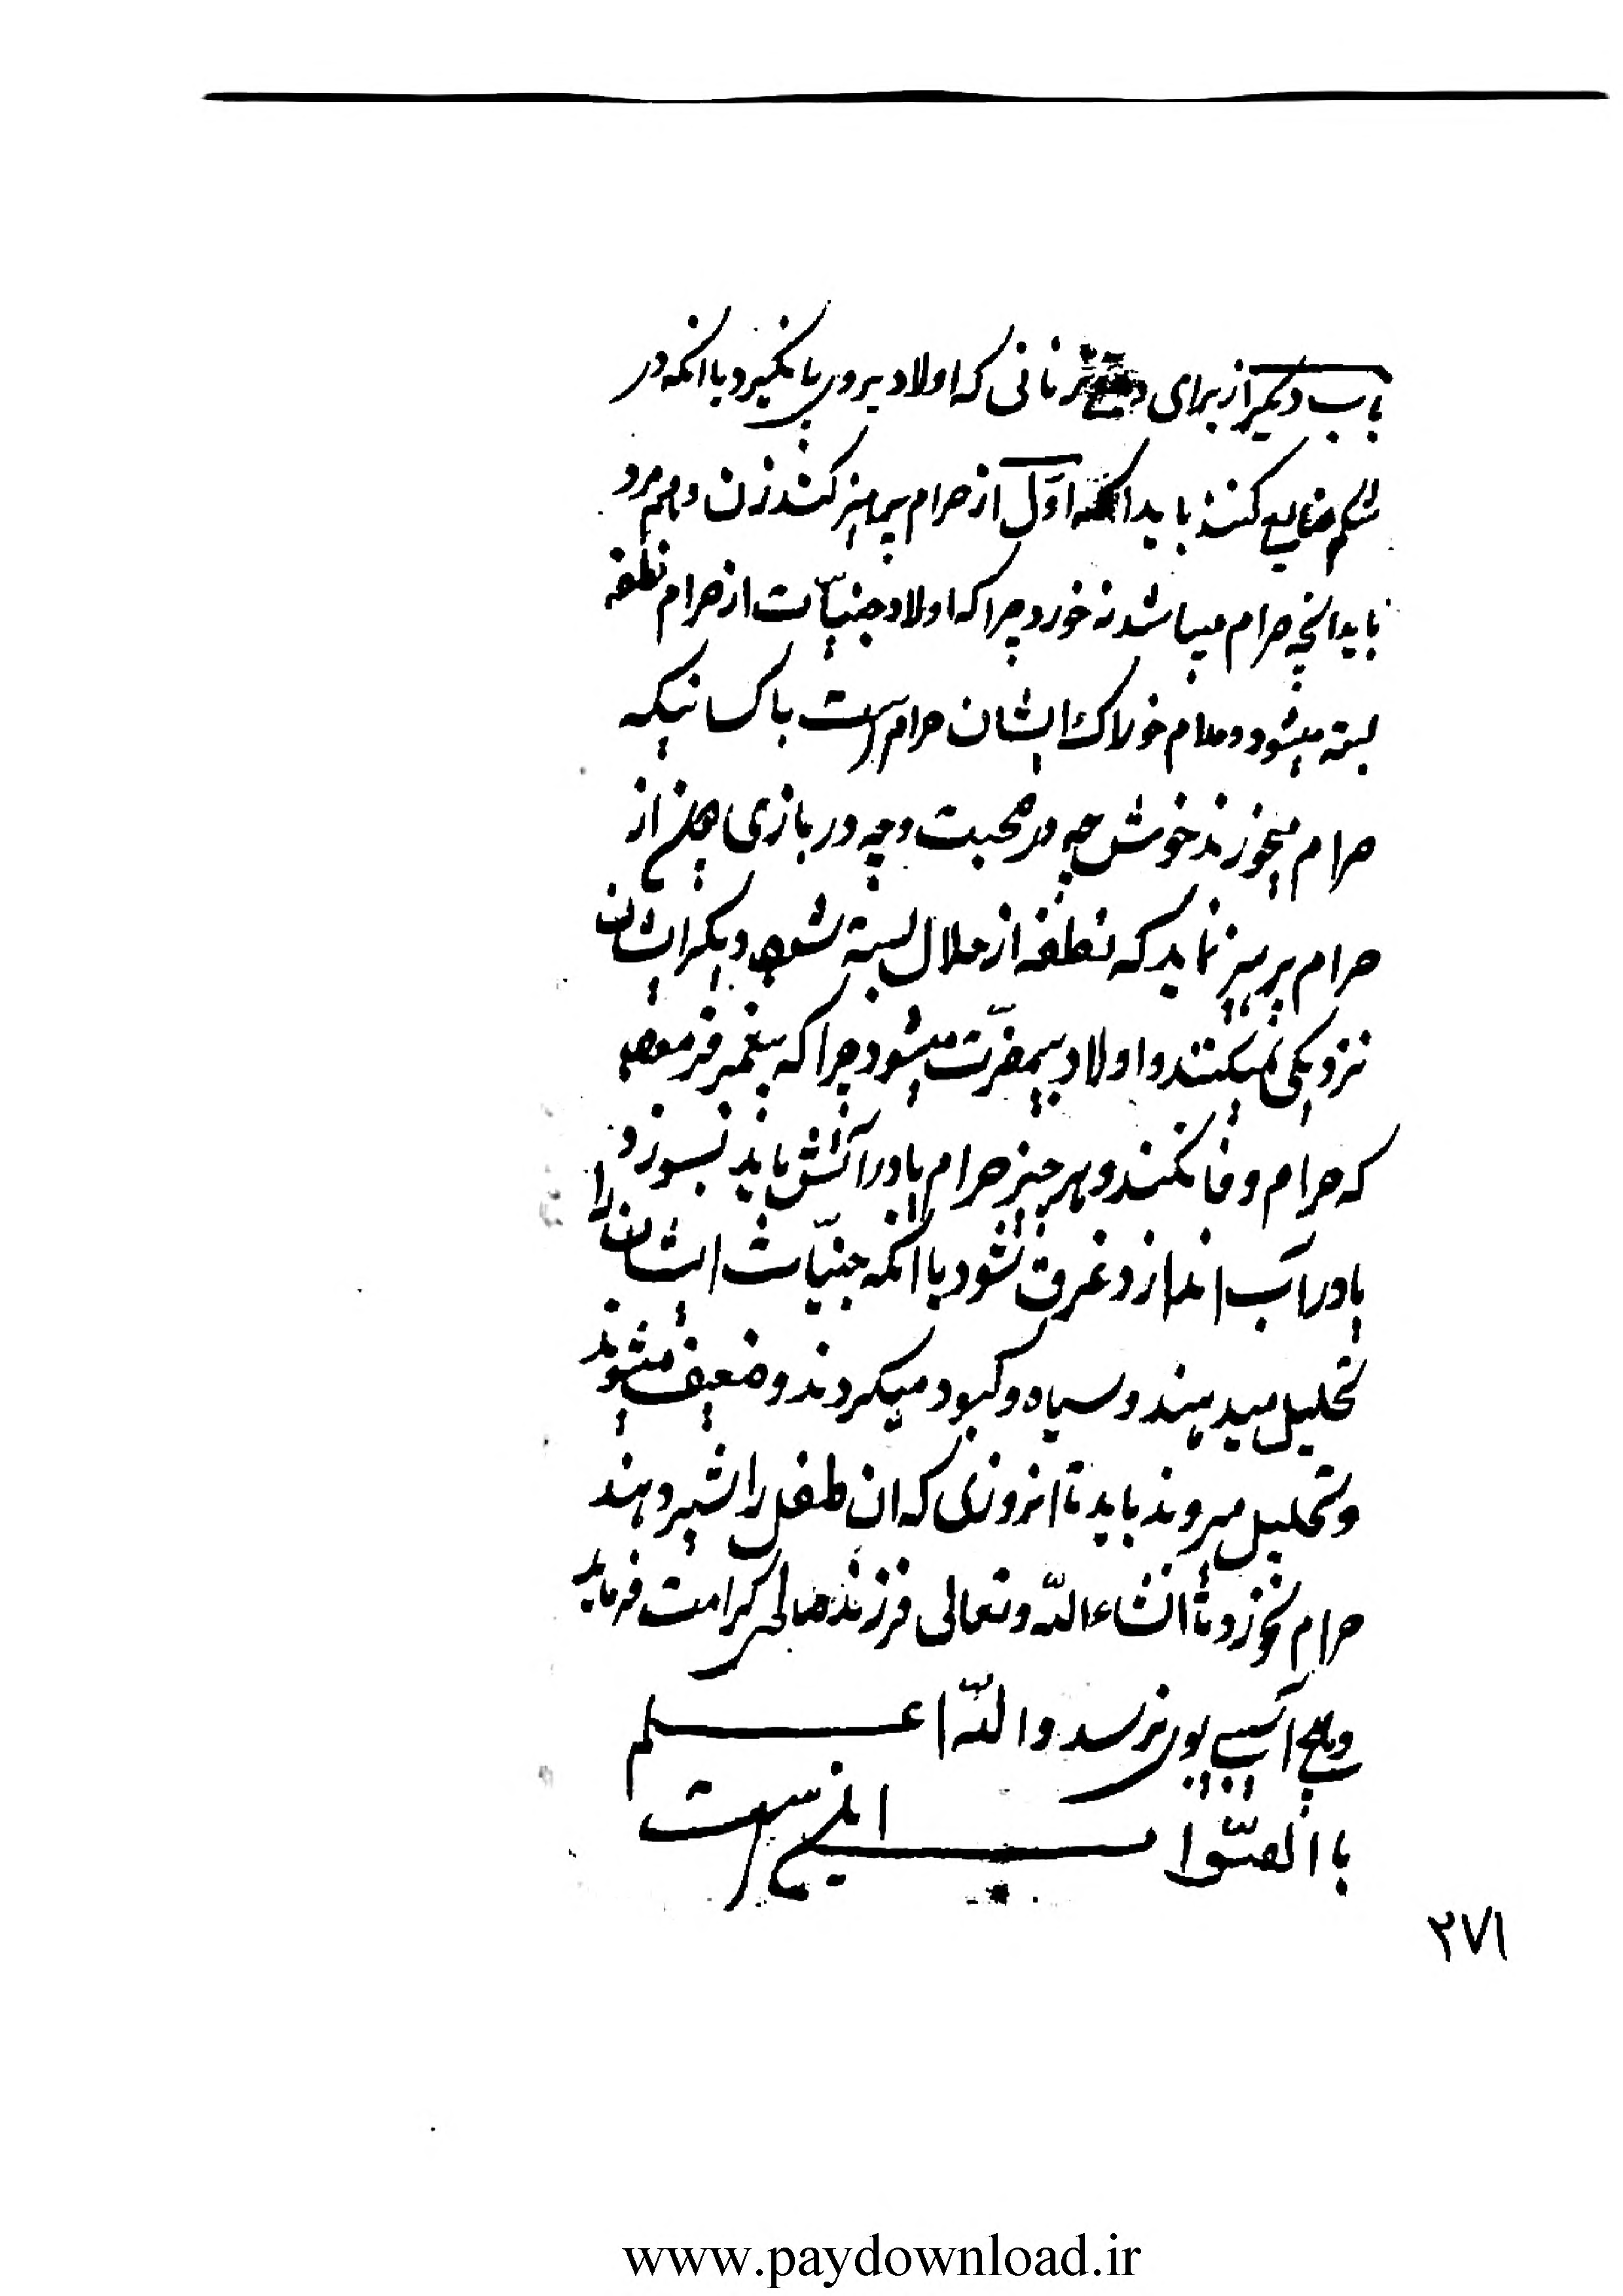 باب دیگر از برای زنانی که اولاد بر روی پا نگیرد یا انکه در
شکم ضایع کنند باید اول از حرام پرهیز کند زن و هم مرد
باید انچه حرام میباشد نه خورد چرا که اولاد جنیّات از حرام نطفه
بسته میشود و مدام خوراک ایشان حرام است با کسانیکه
حرام میخورند خوش چه در محبت و چه در بازی از
حرام پرهیز نماید که نطفه از حلال بسته شود دیگر ایشان
نزدیکی نمیکنند و اولاد بیمضرّت میشود چرا که پیغمبر فرموده
که حرام وفا نکند و هر چیز حرام یا در آتش باید بسوزد
یا در آب اندازد غرق شود یا انکه جنیّات ایشان را
تحلیل میدهند و سیاه و کبود میکردند و ضعیف میشوند
و تحلیل میروند باید تا انروزی که ان طفل را شیر دهند
حرام نخورد تا انشاءالله و تعالی فرزند صالحی کرامت فرماید
و هیچ آسیبی بوی نرسد والله اعلم
با الصّواب اینست
۲۷۱
www.paydownload.ir